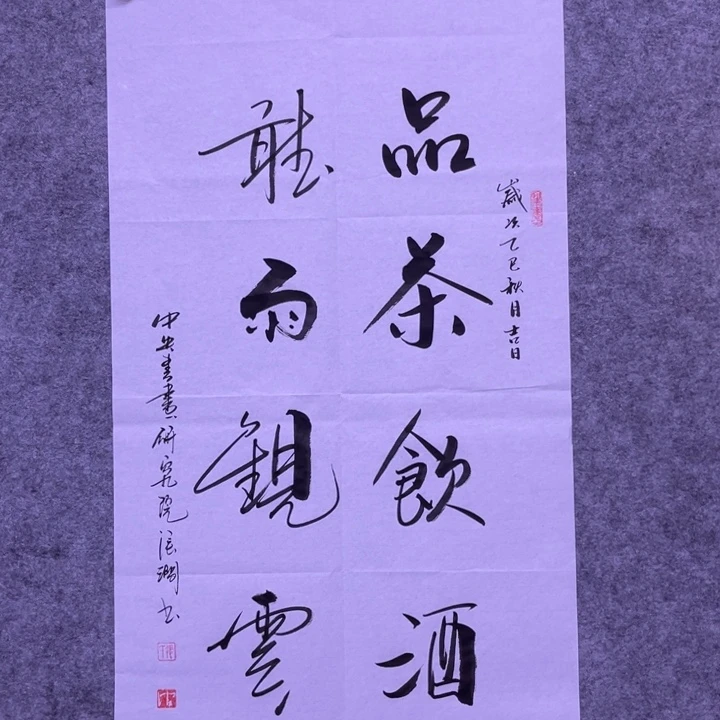 歲次乙巳秋月吉日
品茶飲酒
聽雨觀雲
中央書畫研究院 書